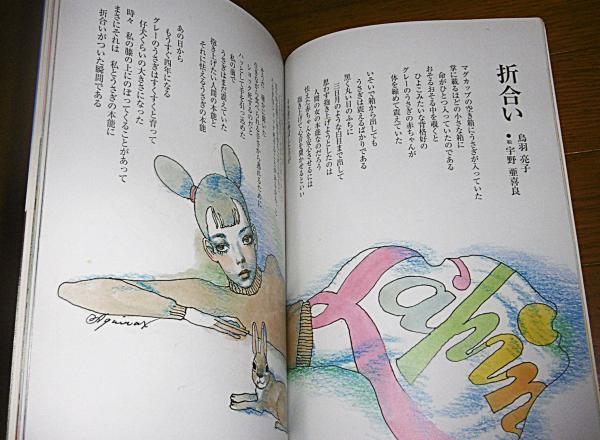 折合い
鳥羽 亮子
絵・宇野 亜喜良
マグカップの空き箱にうさぎが入っていた
掌に載るほどの小さな箱に
命がひとつ入っていたのである
おそるおそる中を覗くと
ひよこみたいな背格好の
グレーのうさぎの赤ちゃんが
体を縮めて震えていた
いそいで箱から出しても
うさぎは震えるばかりである
黒く丸い目のふちに
三日月のような白目まで出して
思わず抱き上げようとしたのは
人間の女の本能なのだろう
怯えた赤ちゃんを安心させるには
抱き上げて心音を聞かせるといい
ハッとして手を
私の前で
うさぎはまだ震えていた
抱き上げたい人間の本能と
それに怯えるうさぎの本能
あの日から
もうすぐ四年になる
グレーのうさぎはすくすくと育って
仔犬くらいの大きさになった
時々 私の膝の上にのぼってくることがあって
まさにそれは 私とうさぎの本能に
折合いがついた瞬間である
Aquirax
Lahin